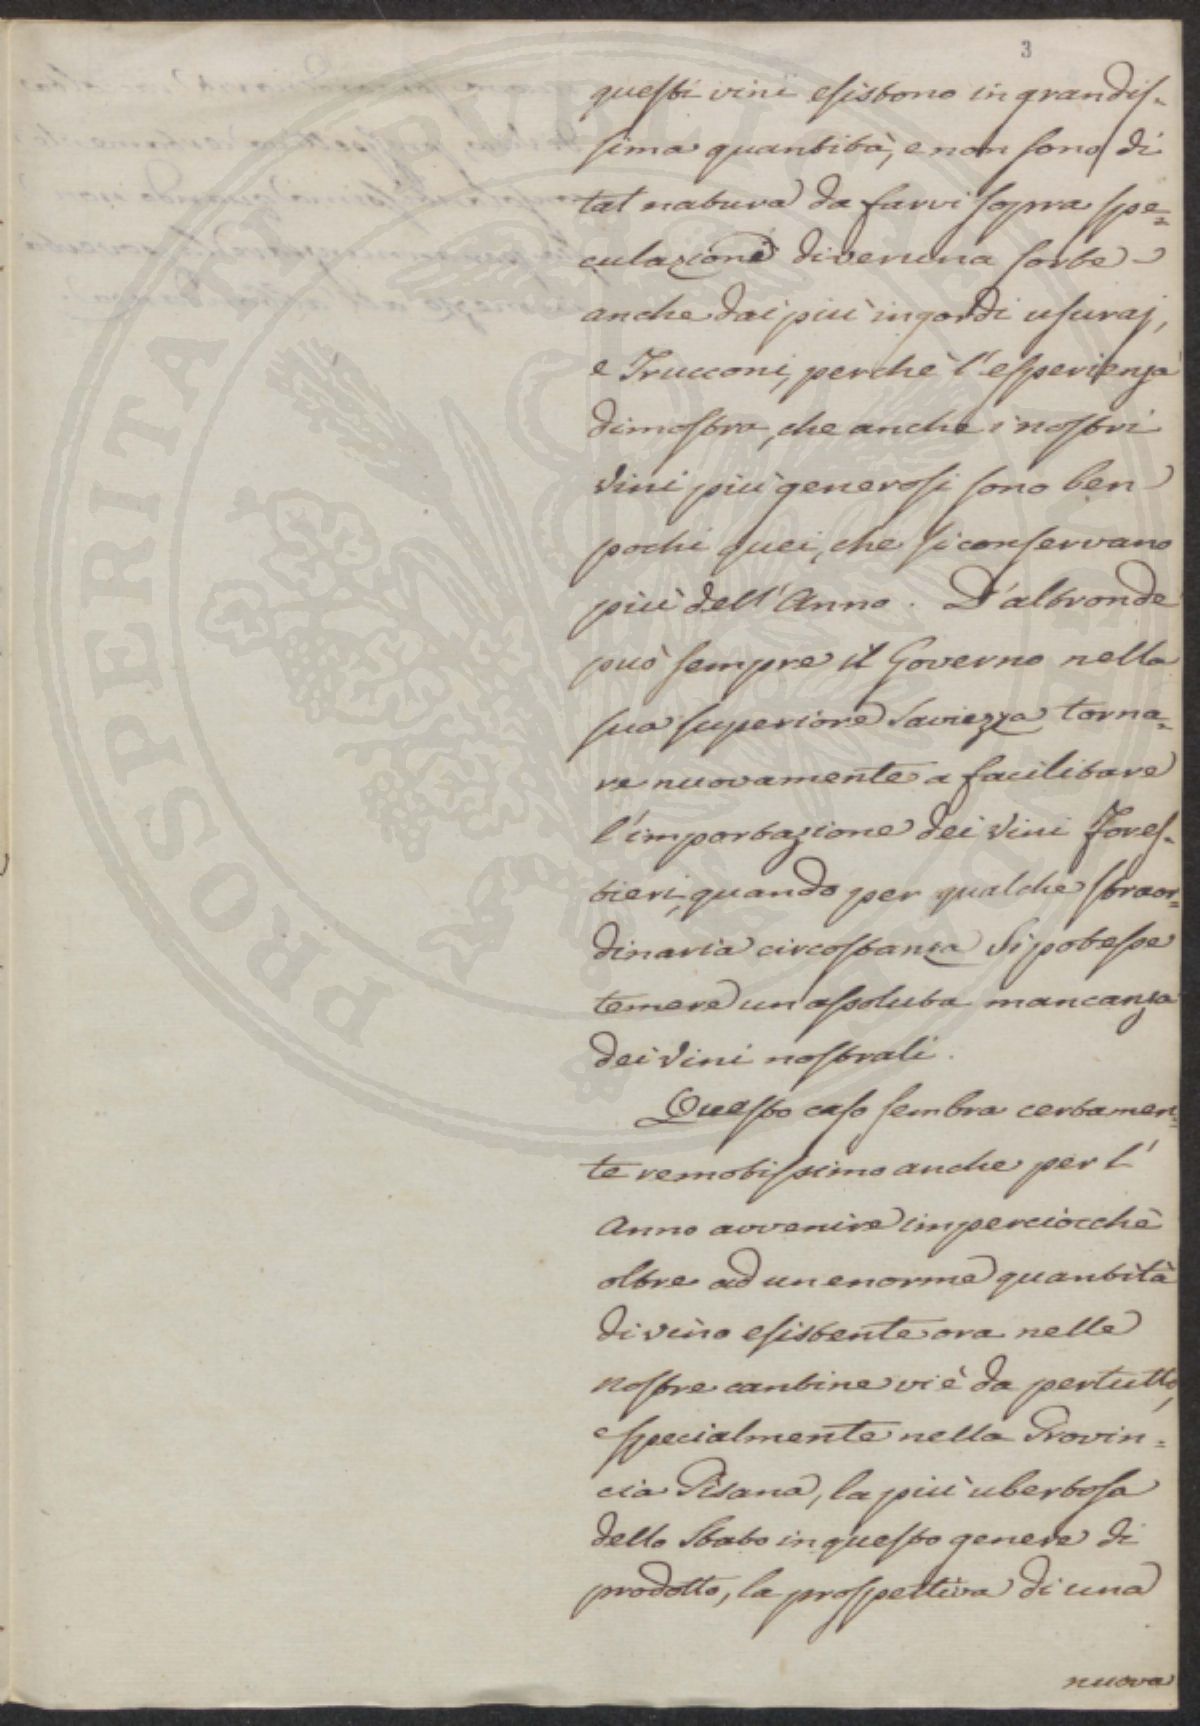 3
questi vini esistono in grandis-
sima quantità, e non sono di
tal natura da farvi sopra spe=
culazione di veruna sorte
anche dai più ingordi usuraj,
e Trucconi, perchè l'esperienza
dimostra, che anche i nostri
vini più generosi sono ben
pochi quei, che si conservano
più dell'Anno. D'altronde
può sempre il Governo nella
sua superiore Saviezza torna=
re nuovamente a facilitare
l'importazione dei Vini Fores-
tieri, quando per qualche straor=
dinaria circostanza Si potesse
temere un assoluta mancanza
dei Vini nostrali.
Questo caso sembra certamen=
te remotissimo anche per l'
Anno avvenire imperciocchè
oltre ad un enorme quantità
di vino esistente ora nelle
nostre cantine vi è da pertutto,
especialmente nella Provin=
cia Pisana, la più ubertosa
dello Stato in questo genere di
prodotto, la prospettiva di una
nuova
PROSPERITATI PUBLICAE